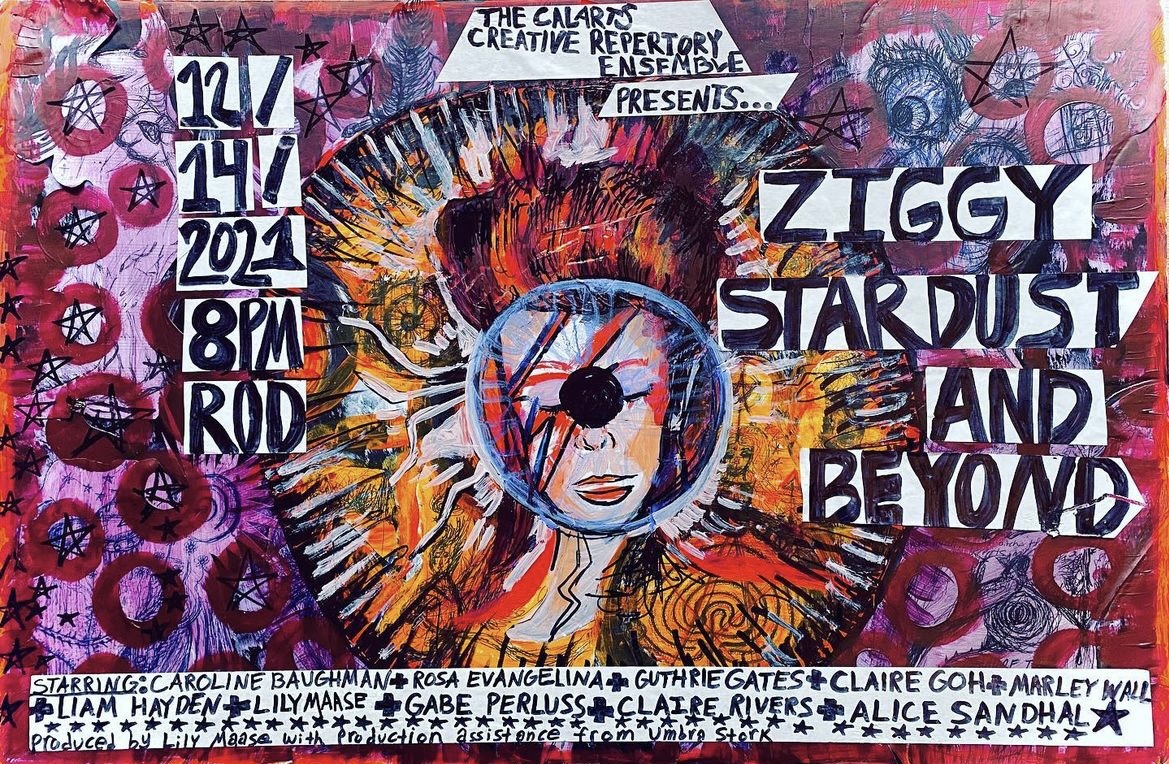 THE CALARTS
CREATIVE REPERTORY
ENSEMBLE
PRESENTS...
12/
14/
2021
8PM
ROD
ZIGGY
STARDUST
AND
BEYOND
STARRING: CAROLINE BAUGHMAN + ROSA EVANGELINA + GUTHRIE GATES + CLAIRE GOH + MARLEY WALL
+ LIAM HAYDEN + LILY MAASE + GABE PERLUSS + CLAIRE RIVERS + ALICE SANDHAL ★
Produced by Lily Maase with Production assistance from Umbra Stork